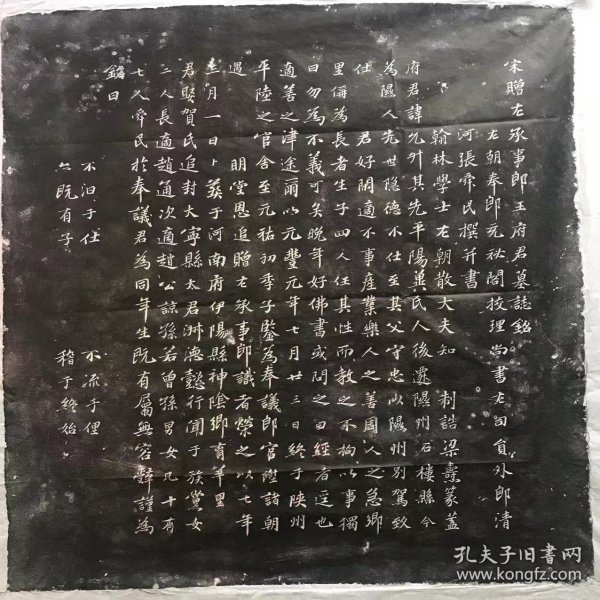 宋贈左承事郎王府君墓誌銘
左朝奉郎充祕閣挍理尚書左司員外郎清
河張舜民撰并書
翰林學士左朝散大夫知 制誥梁燾篆蓋
府君諱允升其先平陽冀氏人後遷隰州石樓縣今
為隰人先世隱德不仕至其父守忠以隰州別駕致
仕 君好閑適不事產業樂人之善周人之急鄉
里偁為長者生子四人任其性而教之不拘以事獨
曰勿為不義可矣晚年好佛書或問之曰經者逕也
適善之津途爾以元豐元年七月廿三日終于陝州
平陸之官舍至元祐初季子鑒為奉議郎官陞諸朝
遇 明堂恩追贈左承事郎議者榮之以七年
三月一日卜葬于河南府伊陽縣神陰鄉 里
君娶賀氏追封大寧縣太君淋德懿行聞于族黨女
二人長適趙通次適趙公諒孫若曾孫男女凡十有
七人舜民於奉議君為同年生既有屬無容辭謹為
銘曰
不汩于仕 不流于俚
六既有子 稽于終始
孔夫子旧书网
www.kongfz.com